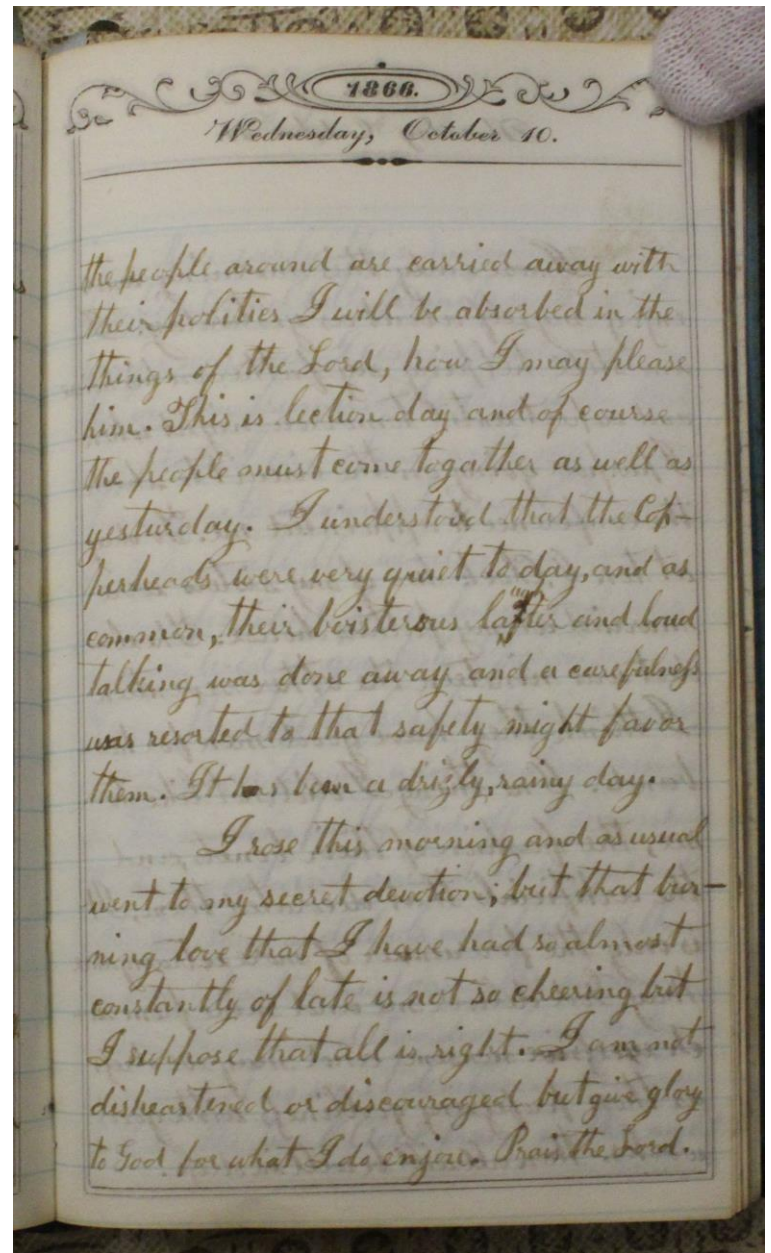 1866.
Wednesday, October 10.
the people around are carried away with
their polities I will be absorbed in the
things of the Lord, how I may please
him. This is lection day and of course
the people must come togather as well as
yesturday. I understood that the Cop-
perheads were very quiet to day, and as
common, their boisterous lafter and loud
talking was done away and a carefulness
was resorted to that safety might favor
them. It has been a drizly, rainy day.
I rose this morning and as usual
went to my secret devotion; but that bur-
ning love that I have had so almost
constantly of late is not so cheering but
I suppose that all is right. I am not
disheartened or discouraged but give glory
to God for what I do enjoy. Prais the Lord.